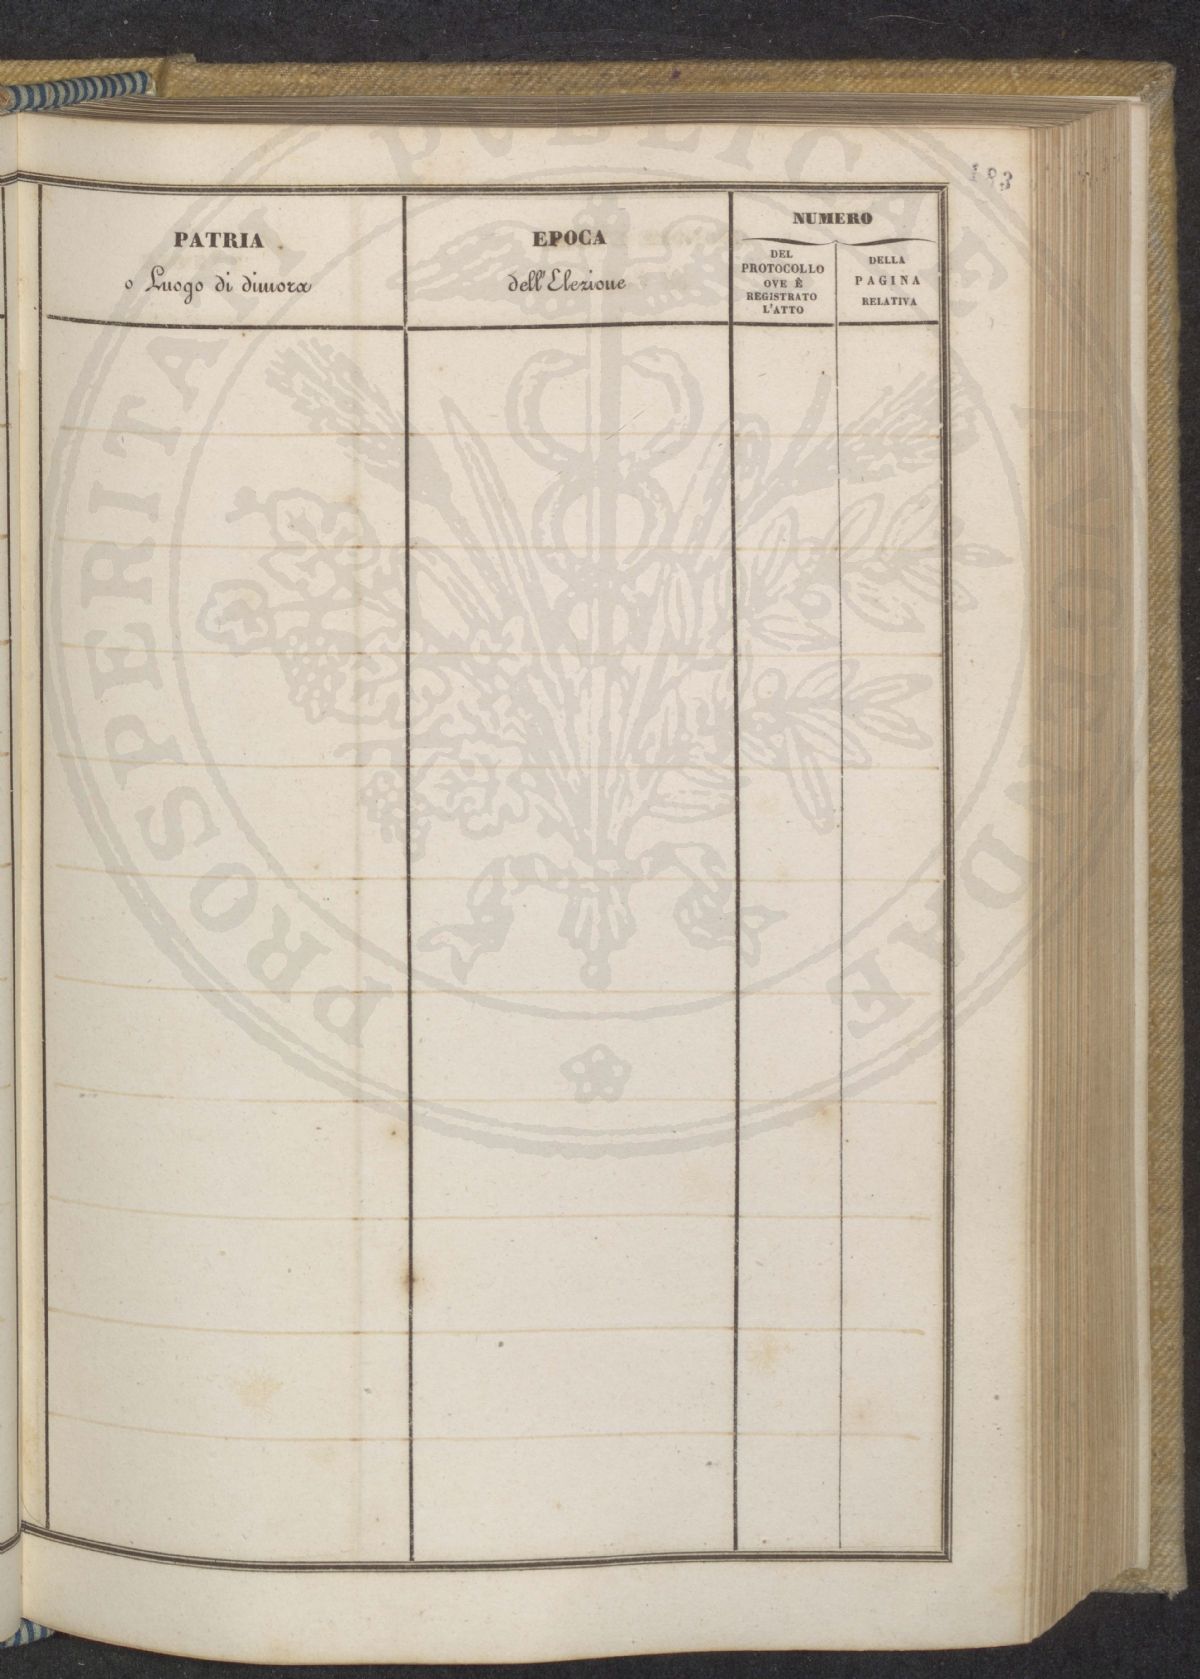 183
PATRIA
o Luogo di dimora
EPOCA
dell'Elezione
NUMERO
DEL
PROTOCOLLO
OVE È
REGISTRATO
L'ATTO
DELLA
PAGINA
RELATIVA
PROSPERITATI PUBLICAE AUGENDAE